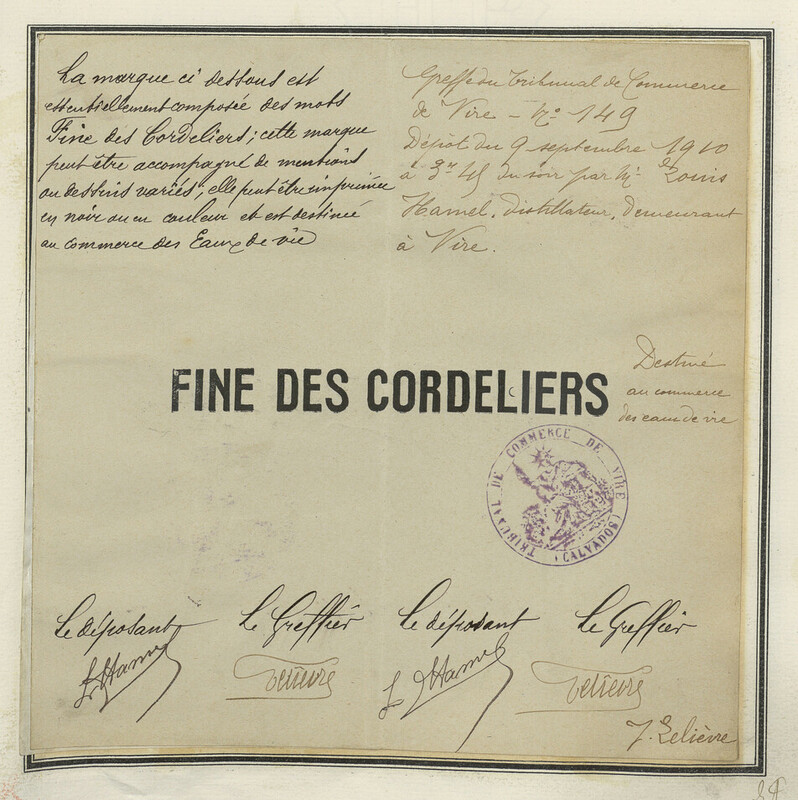 La marque ci dessous est
essentiellement composée des mots
Fine des Cordeliers; cette marque
peut être accompagné de mentions
ou dessins variés; elle peut être imprimée
en noir ou en couleur et est destinée
au commerce des Eaux de vie
Greffe du Tribunal de Commerce
de Vire - No 149
Dépôt du 9 septembre 1910
à 3h 45 du soir par Mr Louis
Hamel, distillateur, demeurant
à Vire.
Destiné
au commerce
des eaux de vie
FINE DES CORDELIERS
TRIBUNAL DE COMMERCE DE VIRE (CALVADOS)
Le déposant Le Greffier Le déposant Le Greffier
L. Hamel Lelièvre L. Hamel Lelièvre
J. Lelièvre